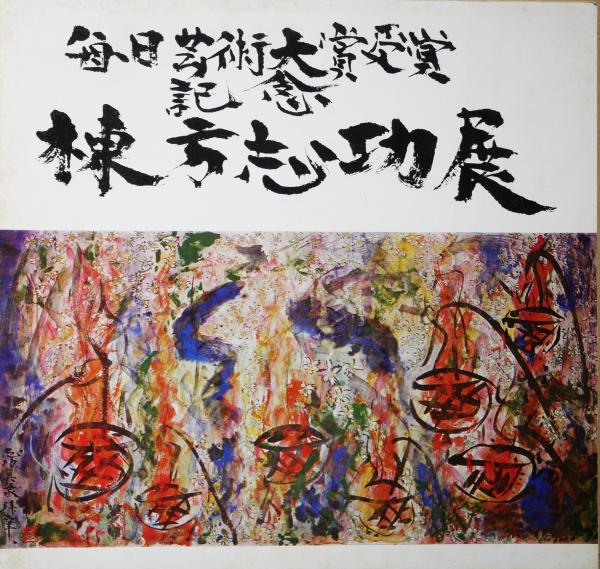 毎日芸術大賞受賞
記念
棟方志功展